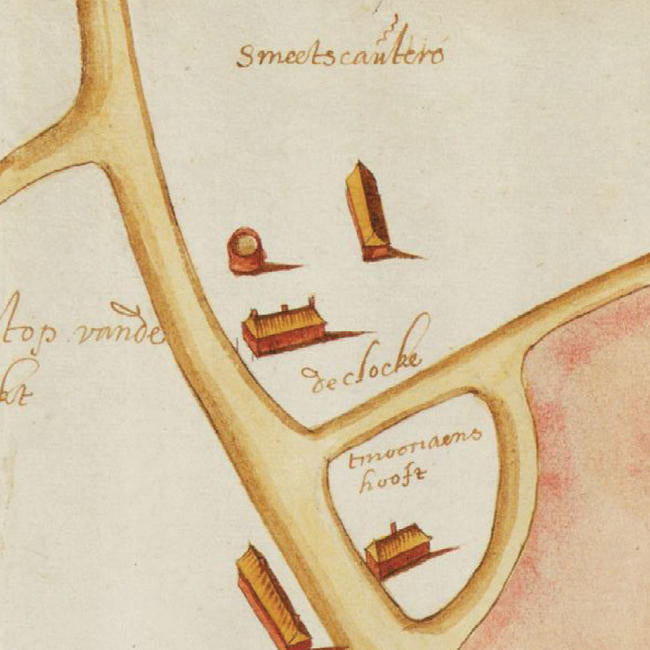 Smeetscauters
top vande
kt
de clocke
tmooriaens
hooft